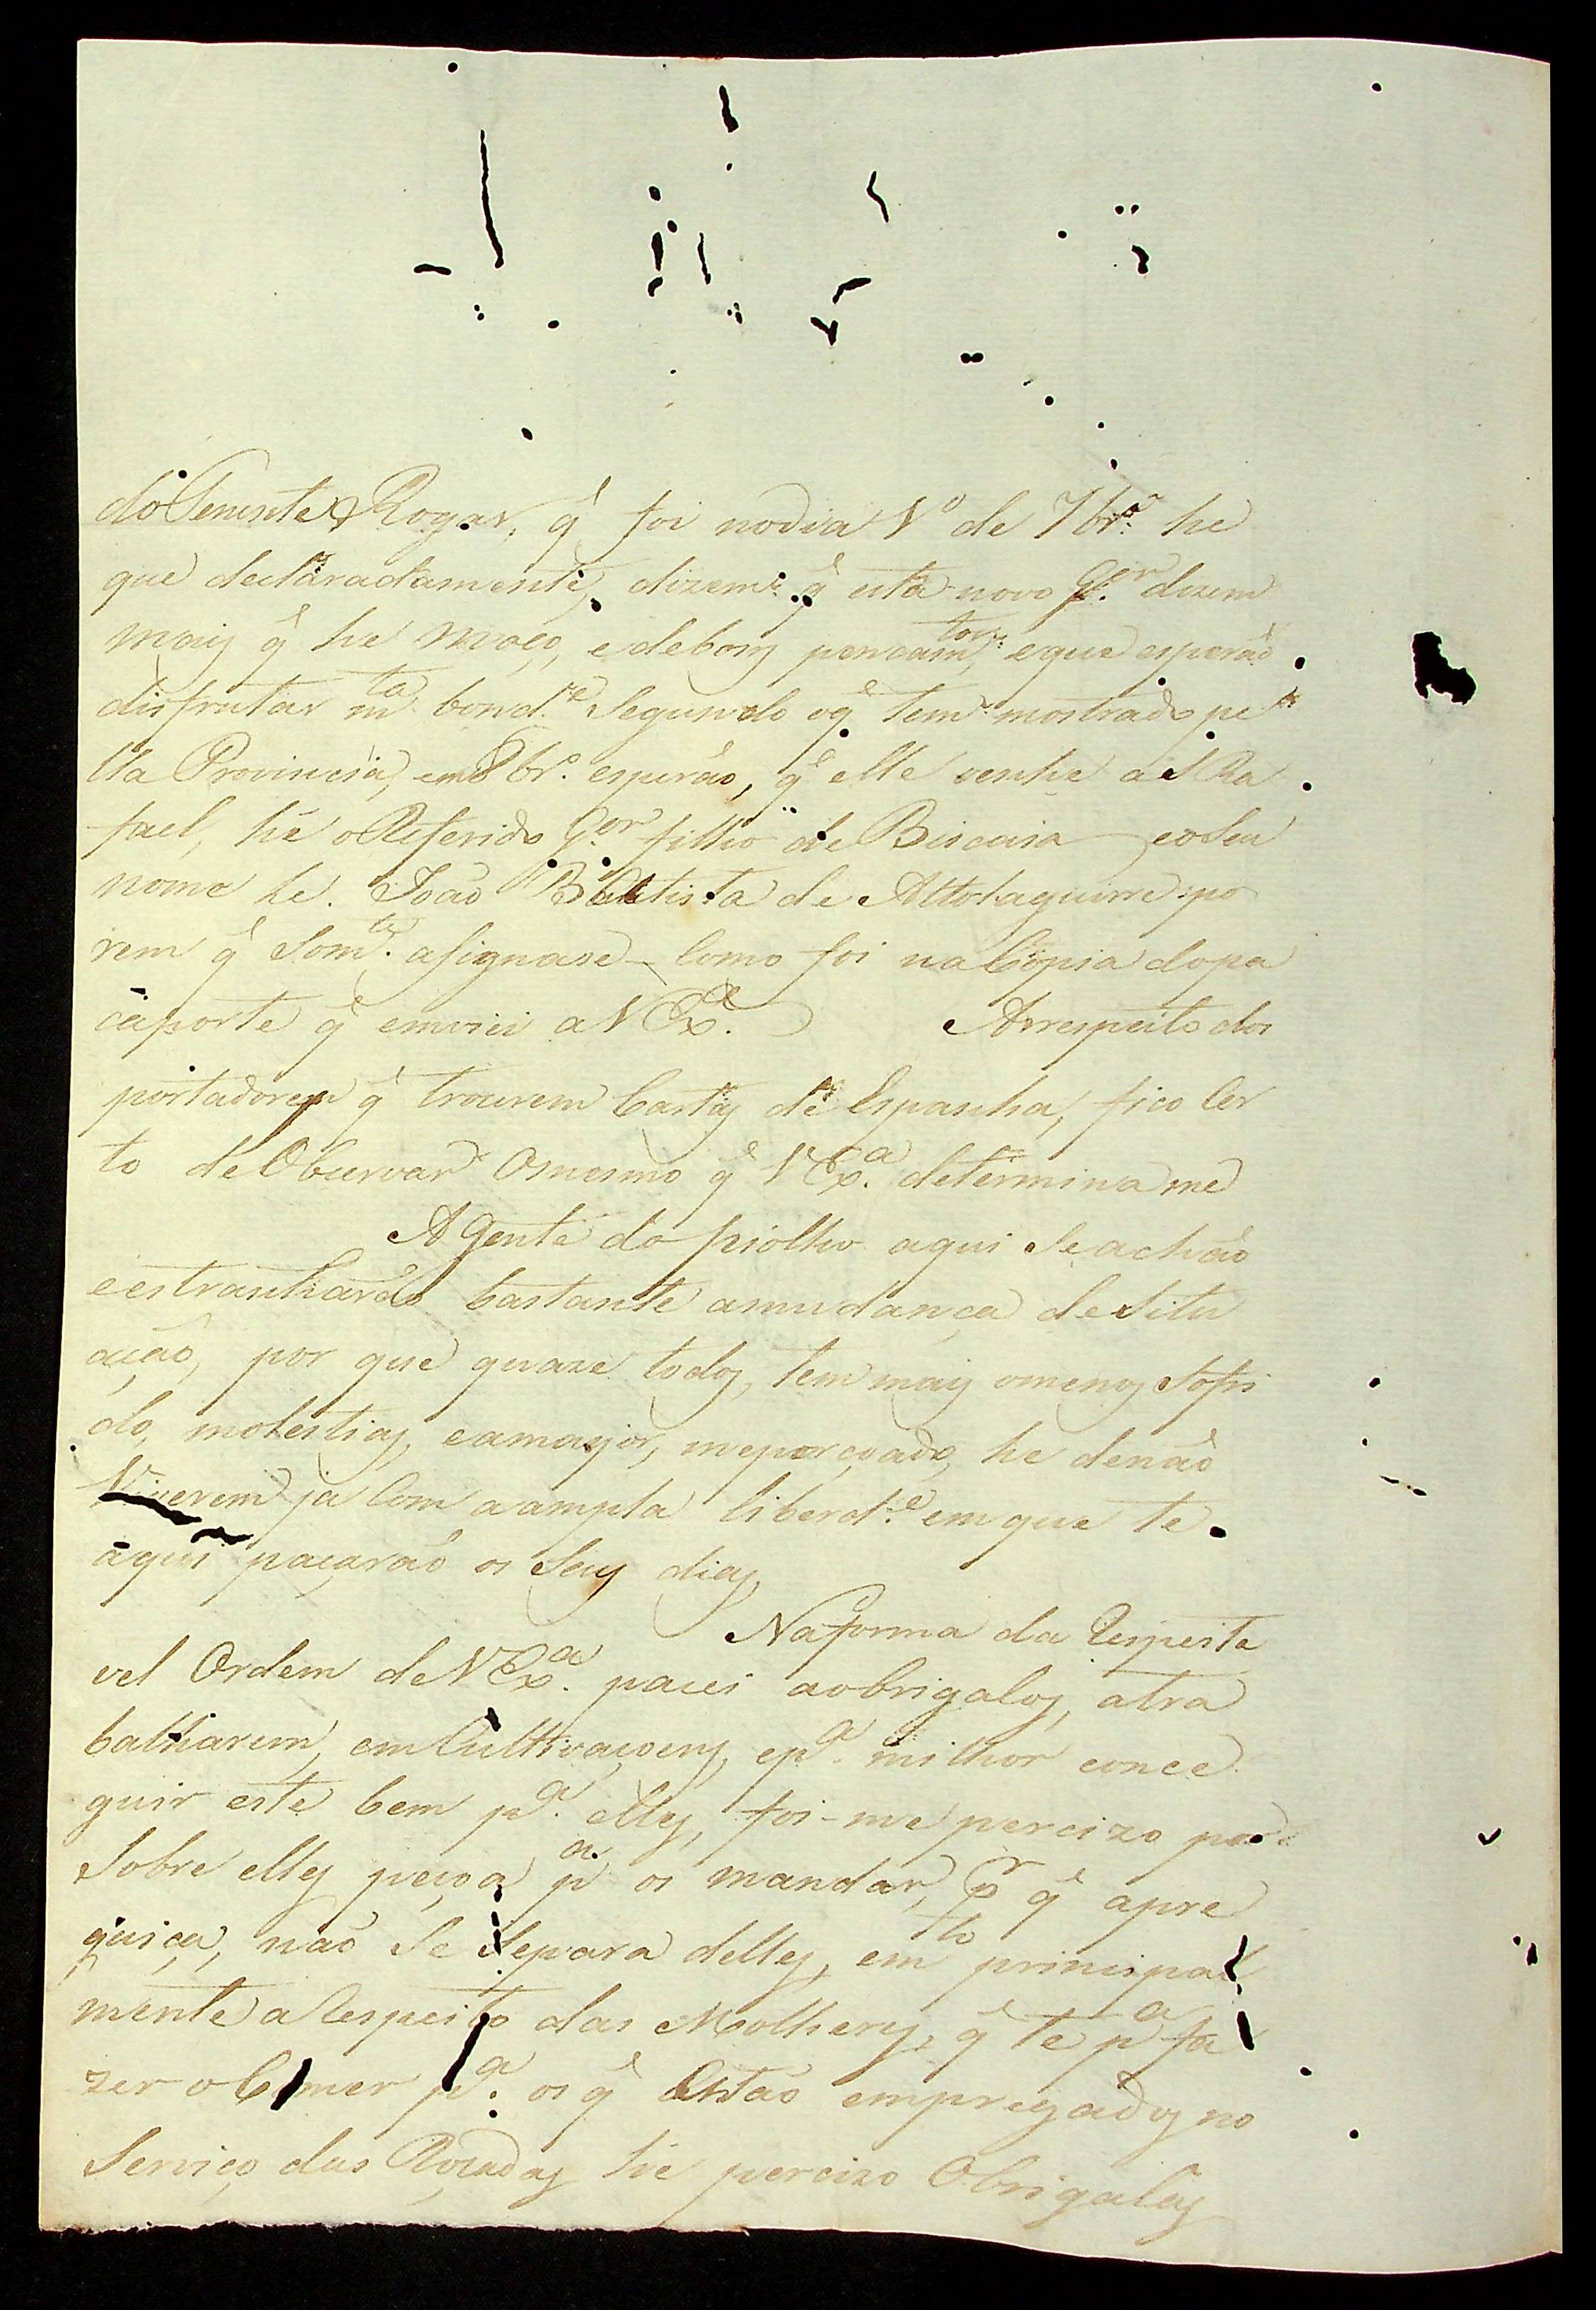 do Tenente Rogar, q̃ foi no dia 1º de 7br.º he
que declaradamente, dizem q̃ está novo G.or dizem
mais q̃ he moço, e de bons pençam.tos e que esperão
disfrutar m.ta bond.e Segundo oq̃ tem mostrado pe
lla Provincia, em 8br.º esperão, q̃ elle venha a S Ra
fael, hé o Referido G.or filho de Biscaia eo Seu
nome he. João Bautista de Altolaguirre po
rem q̃ Som.te asignase Como foi na Cópia do pa
çaporte q̃ enviei a V Ex.ª Arrespeito dos
portadores q̃ trouxerem Cartas de Espanha, fico Cer
to de Observar O mesmo q̃ V Ex.ª determina me
A Gente do piolho aqui Se achão
e estranhando bastante a mudança de Situ
ação, por que quaze todos, tem mais omenos Sofri
do, molestias, e amayor, he de não
Viverem ja Com a ampla liberd.e em que te
aqui paçarão os Seus dias,
Na forma da Respeita
vel Ordem de V Ex.ª pacei a obrigalos, atra
balharem, em Cultivaçoens, e p.ª milhor conce
guir este bem p.ª elles, foi-me percizo por
Sobre elles peçoa p.ª os mandar, p.r q̃ apre
guiça, não Se Separa delles, em to principal
mente a Respeito das Molheres, q̃ té p.ª fa
zer o Comer p.ª os q̃ Estão empregados no
Serviço das Roçadas hé percizo Obrigalas